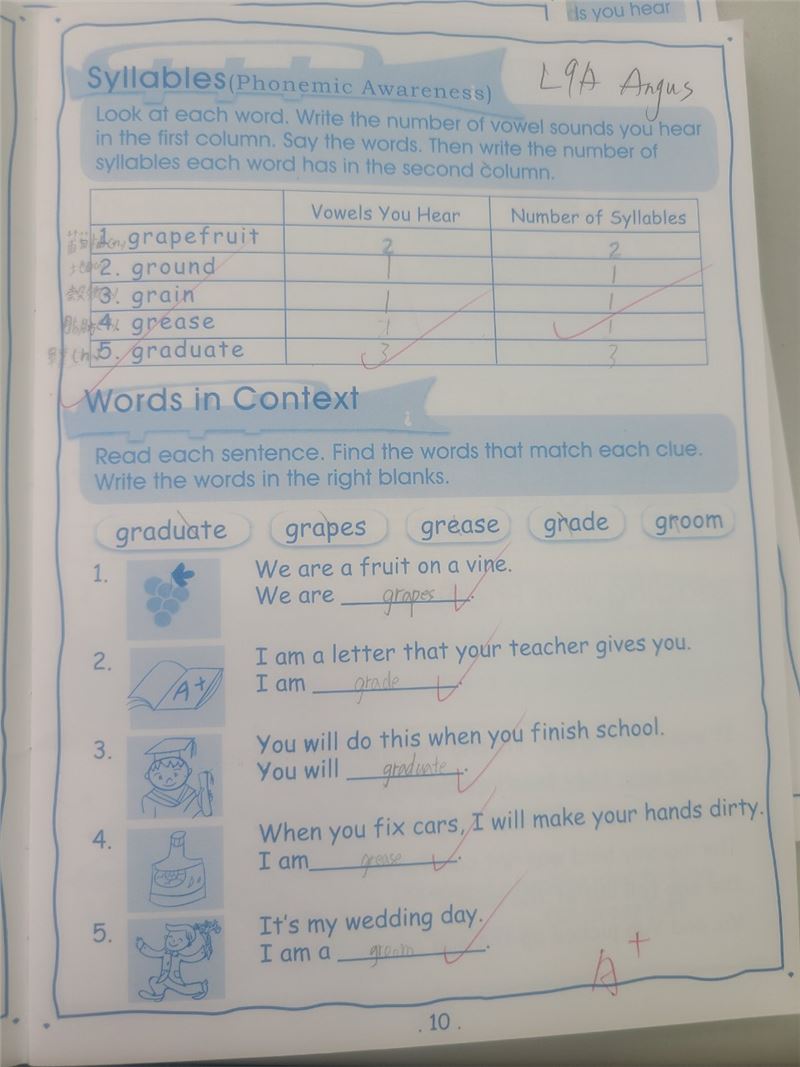 ls you hear
Syllables(Phonemic Awareness)
L9A Angus
Look at each word. Write the number of vowel sounds you hear
in the first column. Say the words. Then write the number of
syllables each word has in the second column.
Vowels You Hear Number of Syllables
1. grapefruit 2 2
2. ground 1 1
3. grain 1 1
4. grease 1 1
5. graduate 3 3
Words in Context
Read each sentence. Find the words that match each clue.
Write the words in the right blanks.
graduate grapes grease grade groom
1. We are a fruit on a vine.
We are grapes.
2. I am a letter that your teacher gives you.
A+
I am grade.
3. You will do this when you finish school.
You will graduate.
4. When you fix cars, I will make your hands dirty.
I am grease.
5. It's my wedding day.
I am a groom.
A+
. 10 .